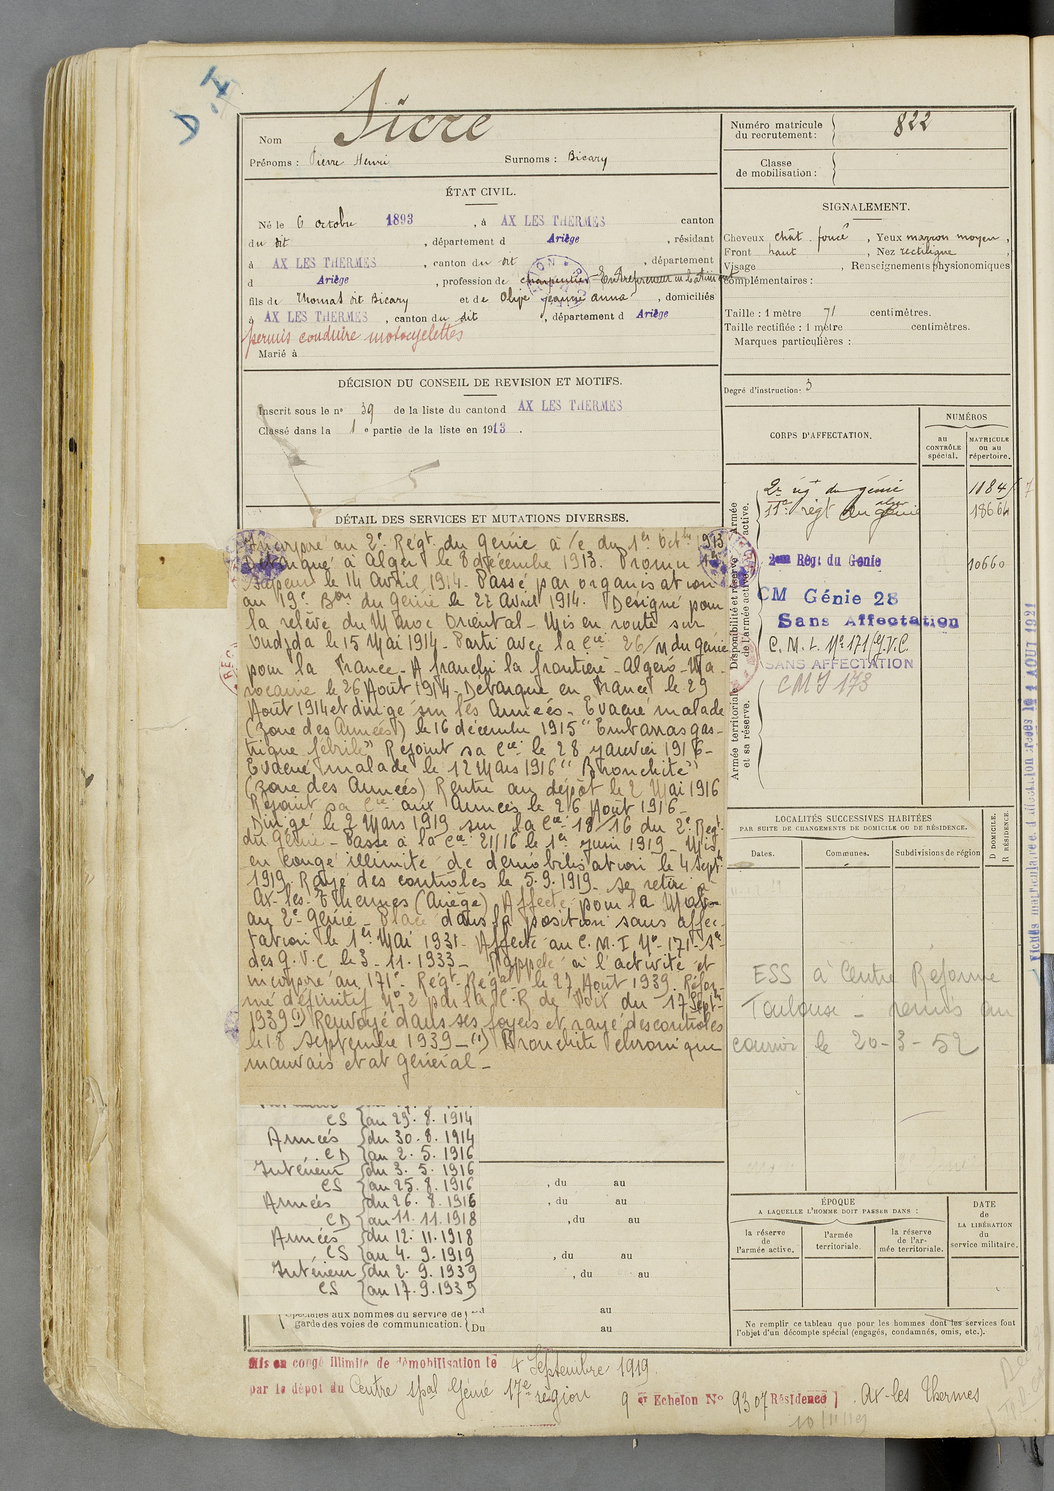 D.I
Nom Sicre
Prénoms : Pierre Henri Surnoms : Bicary
ÉTAT CIVIL.
Né le 6 octobre 1893, à AX LES THERMES canton
du dit, département d Ariège, résidant
à AX LES THERMES, canton du dit, département
d Ariège, profession de charpentier Entrepreneur
fils de Thomas dit Bicary et de Olive jeanne anna, domiciliés
à AX LES THERMES, canton du dit, département d Ariège
permis conduire motocyclettes
Marié à
DÉCISION DU CONSEIL DE REVISION ET MOTIFS.
Inscrit sous le n° 39 de la liste du canton d AX LES THERMES
Classé dans la 1e partie de la liste en 1913.
5
DÉTAIL DES SERVICES ET MUTATIONS DIVERSES.
Incorporé au 2e Régt du Génie à /c du 1er Octbre 1913
Débarqué à Alger le 8 décembre 1913. Promu
Sapeur le 14 Avril 1914. Passé par organisation
au 19e Bon du Génie le 22 Avril 1914. Désigné pour
la relève du Maroc Oriental - Mis en route sur
Oudjda le 15 Mai 1914 - Parti avec la Cie 26/M du génie
pour la France - A franchi la frontière Algéro-Ma
rocaine le 26 Août 1914 - Débarqué en France le 29
Août 1914 et dirigé sur les Armées - Evacué malade
(zone des Armées) le 16 décembre 1915 "Embarras gas-
trique fébrile" Rejoint sa Cie le 28 janvier 1916 -
Evacué malade le 12 Mars 1916 "Bronchite"
(zone des Armées) Rentré au dépôt le 2 Mai 1916
Rejoint sa Cie aux Armées le 26 Août 1916 -
Dirigé le 2 Mars 1919 sur la Cie 19/16 du 2e Régt
du Génie - Passé à la Cie 21/16 le 1er juin 1919 - Mis
en congé illimité de démobilisation le 4 Septe
1919 Rayé des contrôles le 5.9.1919 - Se retire à
Ax-les-Thermes (Ariège) Affecté pour la Mobon
au 2e Génie - Placé dans la position sans affec-
tation le 1er Mai 1931 - Affecté au C.M.I No 171 - Sn
des G.V.C le 3-11-1933 - Rappelé à l'activité et
incorporé au 171e Régt Régal le 27 Août 1939. Réfor-
mé définitif No 2 p. la C.R de Foix du 17 Septe
1939 (1) Renvoyé dans ses foyers et rayé des contrôles
le 18 Septembre 1939 - (1) Bronchite chronique
mauvais état général -
CS {au 29.8.1914
Armées {du 30.8.1914
CD {au 2.5.1916
Intérieur {du 3.5.1916
CS {au 25.8.1916
Armées {du 26.8.1916
CD {au 11.11.1918
Armées {du 12.11.1918
CS {au 4.9.1919
Intérieur {du 2.9.1939
CS {au 17.9.1939
, du au
, du au
, du au
, du au
, du au
spéciales aux hommes du service de
garde des voies de communication.
au
Du au
Numéro matricule
du recrutement : 822
Classe
de mobilisation :
SIGNALEMENT.
Cheveux chât. foncé, Yeux marron moyen,
Front haut, Nez rectiligne,
Visage, Renseignements physionomiques
complémentaires :
Taille : 1 mètre 71 centimètres.
Taille rectifiée : 1 mètre centimètres.
Marques particulières :
Degré d'instruction : 3
CORPS D'AFFECTATION.
NUMÉROS
au
CONTRÔLE
spécial.
MATRICULE
ou au
répertoire.
Armée
active.
Disponibilité et réserve
de l'armée active.
Armée territoriale
et sa réserve.
2e régt du génie 11847
19e régt du génie 18664
2ème Régt du Génie 10660
CM Génie 28
Sans Affectation
C.M.I. No 171/G.V.C.
SANS AFFECTATION
CMI 173
LOCALITÉS SUCCESSIVES HABITÉES
PAR SUITE DE CHANGEMENTS DE DOMICILE OU DE RÉSIDENCE.
Dates. Communes. Subdivisions de région
D DOMICILE.
R RÉSIDENCE.
ESS à Centre Réforme
Toulouse - remis au
courrier le 20-3-52
ÉPOQUE
A LAQUELLE L'HOMME DOIT PASSER DANS :
la réserve
de
l'armée active.
l'armée
territoriale.
la réserve
de l'ar-
mée territoriale.
DATE
de
LA LIBÉRATION
du
service militaire.
Ne remplir ce tableau que pour les hommes dont les services font
l'objet d'un décompte spécial (engagés, condamnés, omis, etc.).
Mis en congé illimité de démobilisation le 4 Septembre 1919
par le dépôt du Centre Mal Génie 17e région 9 e Echelon No 9307 Résidence Ax-les Thermes